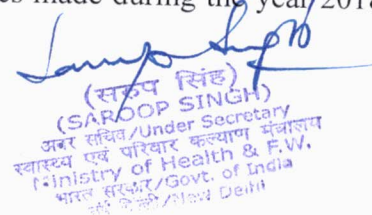 es made during the year 2018
(सरुप सिंह)
(SAROOP SINGH)
अवर सचिव/Under Secretary
स्वास्थ्य एवं परिवार कल्याण मंत्रालय
Ministry of Health & F.W.
भारत सरकार/Govt. of India
नई दिल्ली/New Delhi